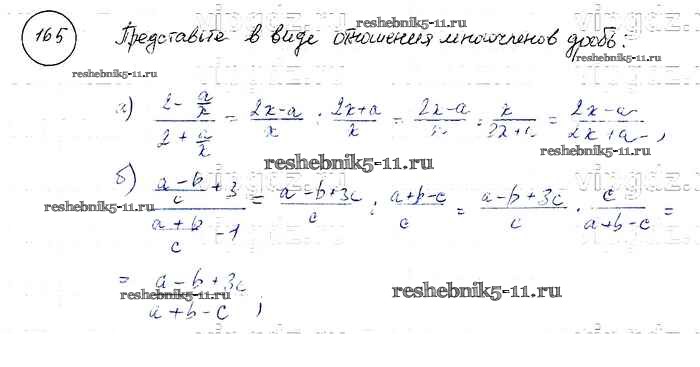 165 Представьте в виде отношения многочленов дробь:
reshebnik5-11.ru
reshebnik5-11.ru
reshebnik5-11.ru
а) (2 - a/x)/(2 + a/x) = (2x-a)/x : (2x+a)/x = (2x-a)/x · x/(2x+a) = (2x-a)/(2x+a) ;
reshebnik5-11.ru
reshebnik5-11.ru
б) ((a-b)/c + 3)/((a+b)/c - 1) = (a-b+3c)/c : (a+b-c)/c = (a-b+3c)/c · c/(a+b-c) =
reshebnik5-11.ru
= (a-b+3c)/(a+b-c) ;
reshebnik5-11.ru
reshebnik5-11.ru